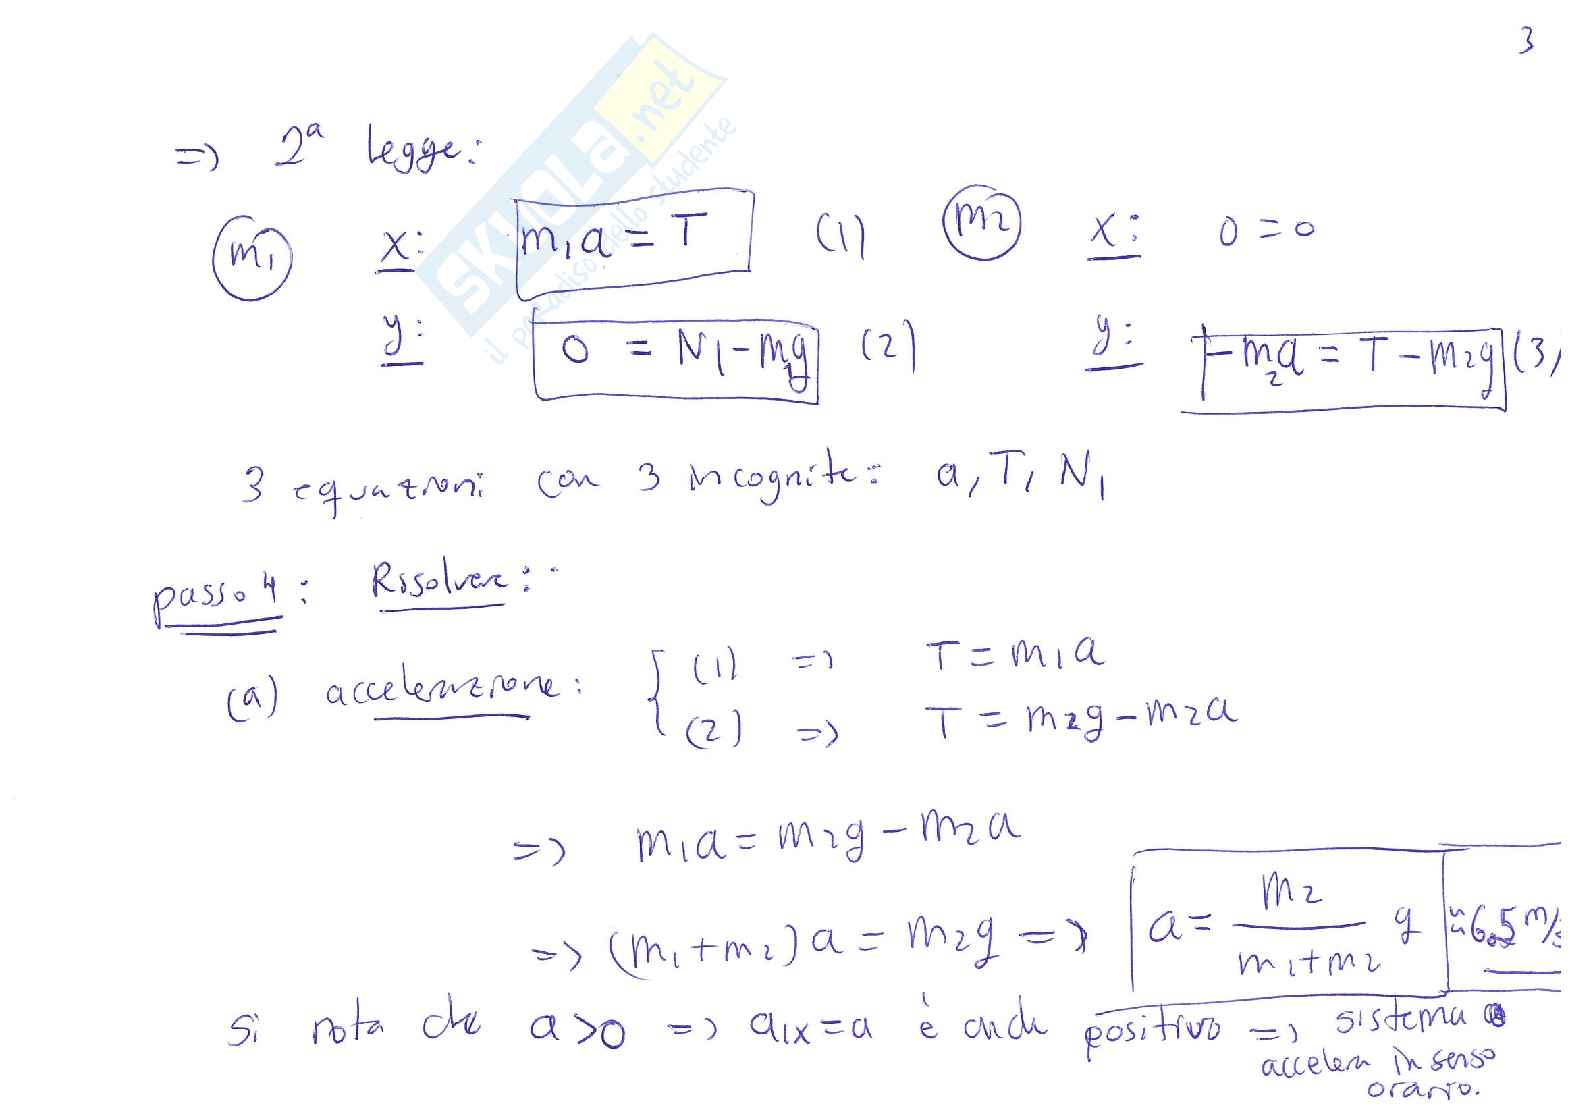 3
=> 2ª legge:
m1 x: m1a = T (1) m2 x: 0 = 0
y: 0 = N1 - m1g (2) y: - m2a = T - m2g (3)
3 equazioni con 3 incognite: a, T, N1
passo 4: Risolvere:
(a) accelerazione: { (1) => T = m1a
(2) => T = m2g - m2a
=> m1a = m2g - m2a
=> (m1+m2)a = m2g => a = m2/(m1+m2) g ≈ 6.5 m/s
si nota che a>0 => a1x = a è anche positivo => sistema
accelera in senso
orario.
SKUOLA.net
il paradiso dello studente